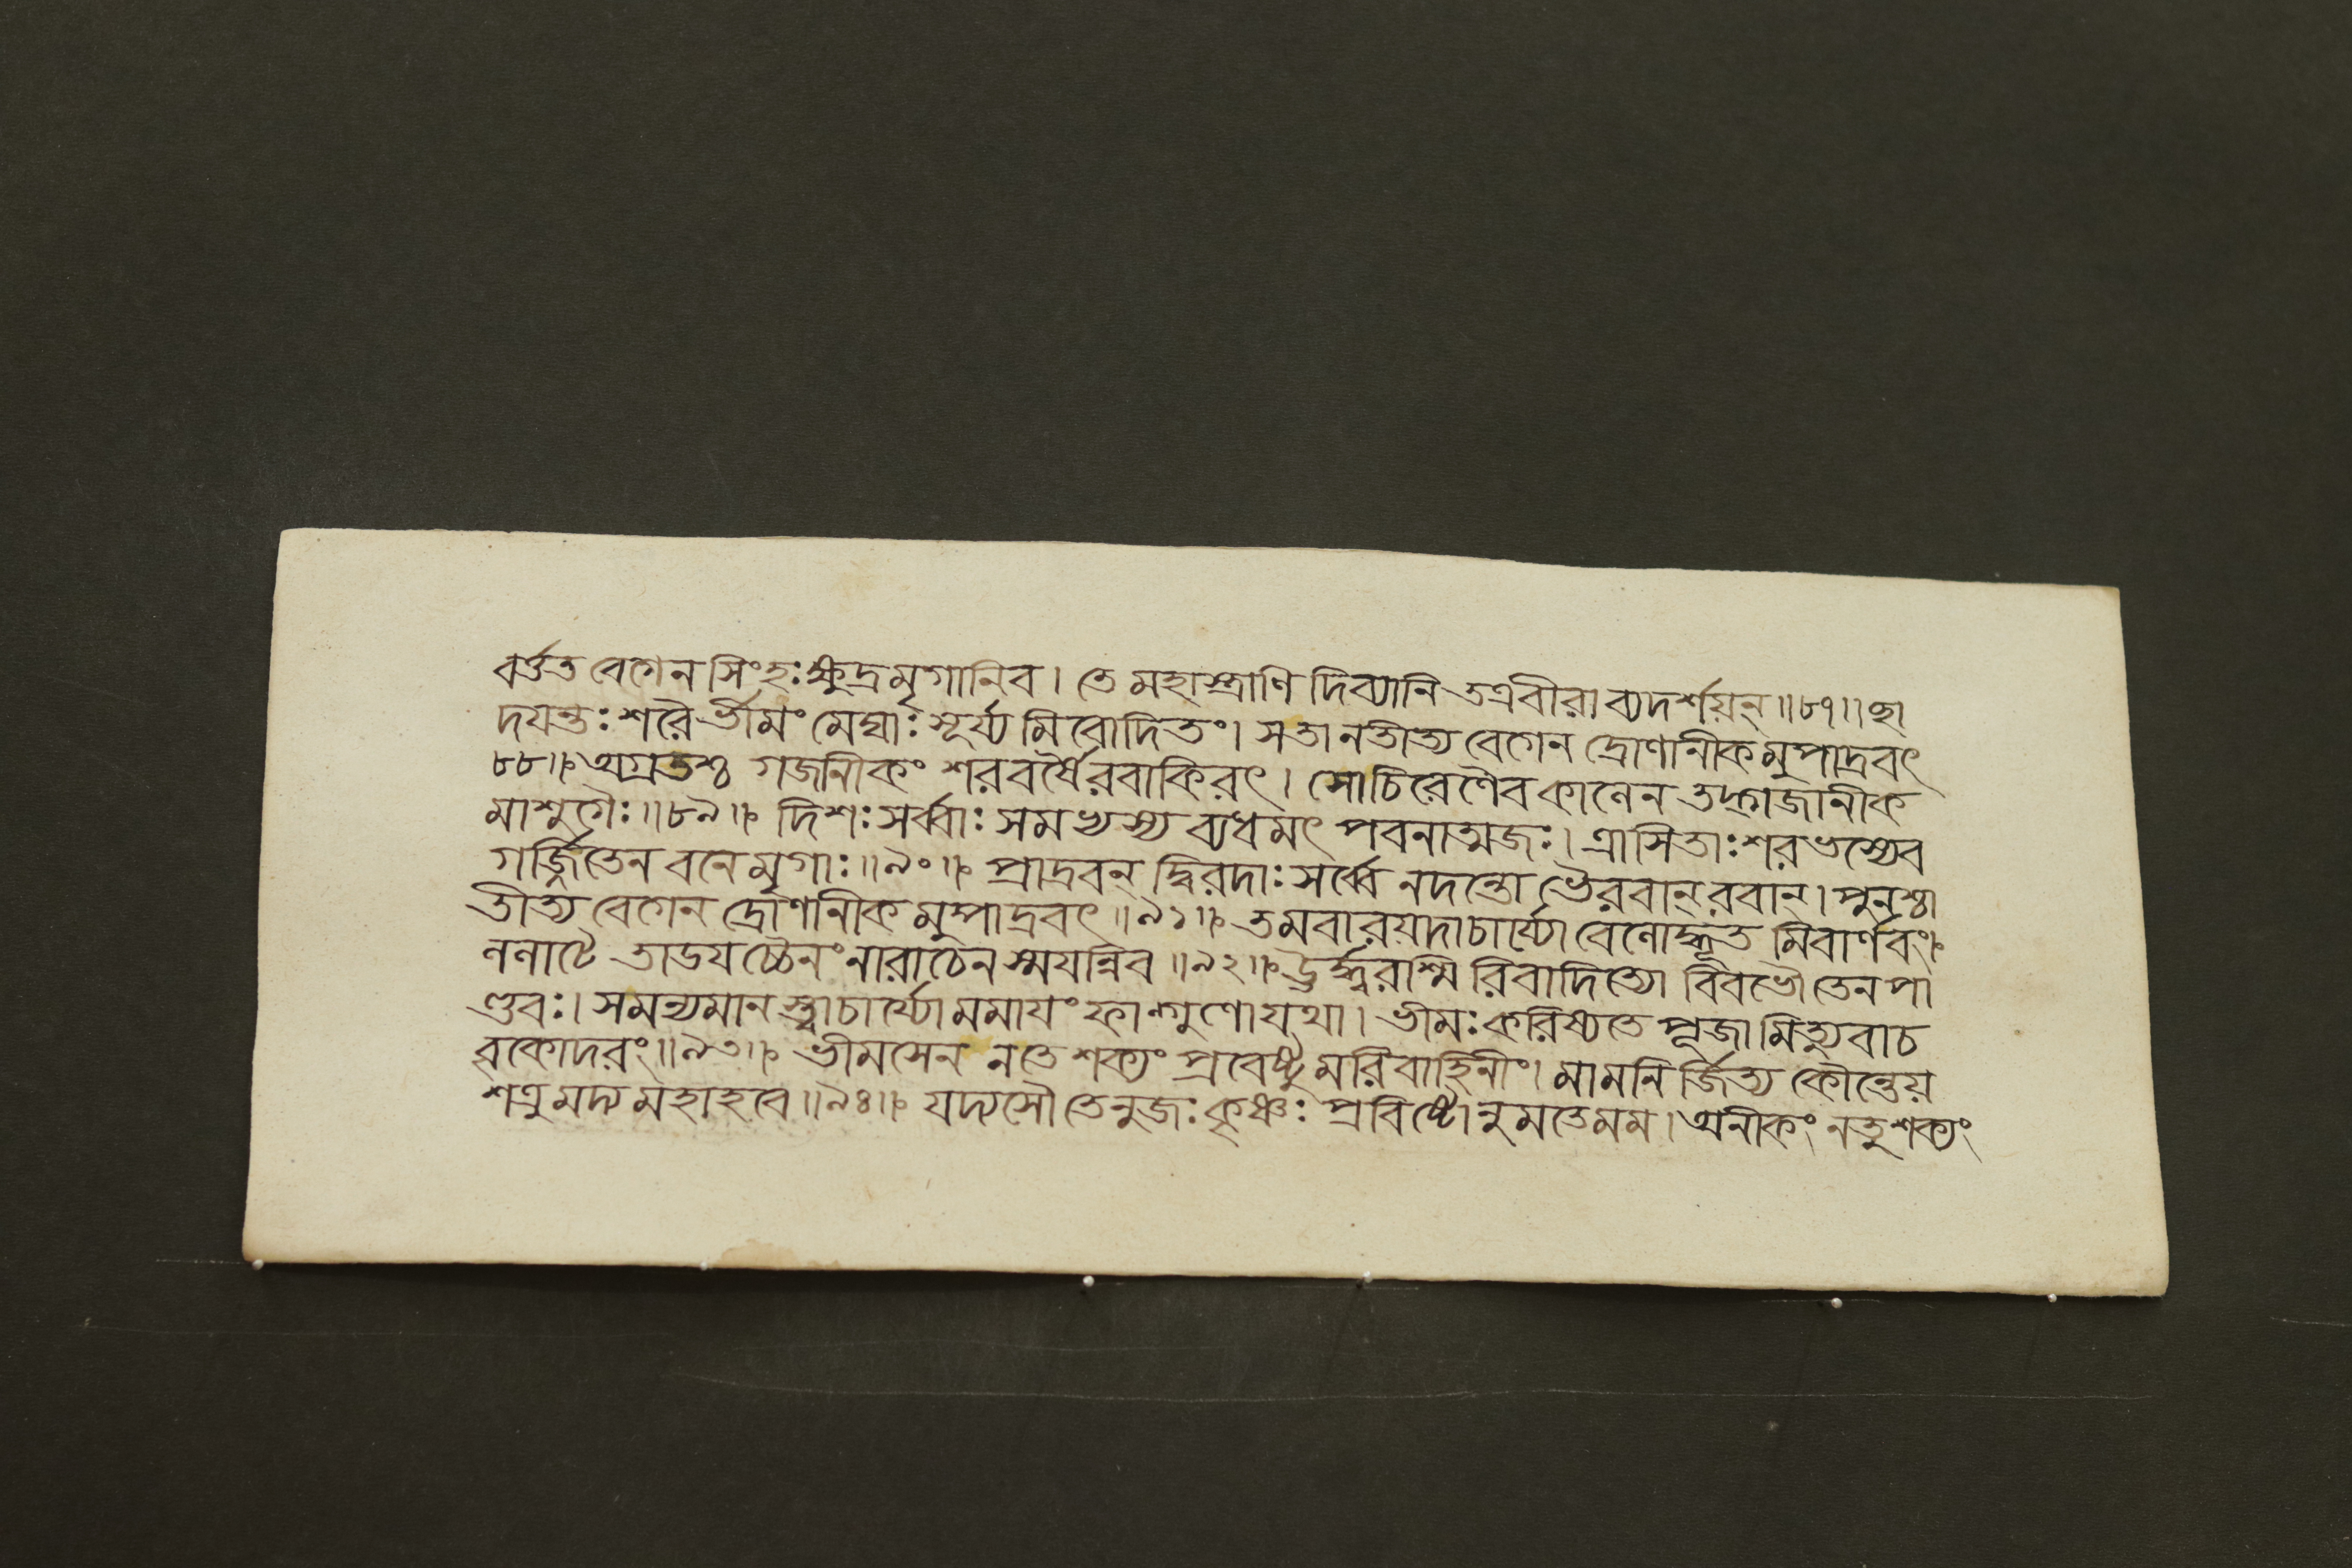 বর্ত্তত বেগেন সিংহঃ ক্ষুদ্রমৃগানিব। তে মহাস্ত্রাণি দিব্যানি তত্রবীরা ব্যদর্শয়ন্॥৮৭॥ছা
দযন্তঃ শরৈর্ভীমং মেঘাঃ সূর্য্য মিবোদিতং। সতানতীত্য বেগেন দ্রোণানীকমুপাদ্রবৎ
৮৮॥ অগ্রতশ্চ গজানীকং শরবর্ষৈরবাকিরৎ। সোচিরেণৈব কালেন তদ্গজানীক
মাশুগৈঃ॥৮৯॥ দিশঃ সর্ব্বাঃ সমভ্যস্য ব্যধমৎ পবনাত্মজঃ। ত্রাসিতাঃ শরভস্যেব
গর্জ্জিতেন বনে মৃগাঃ॥৯০॥ প্রাদ্রবন্ দ্বিরদাঃ সর্ব্বে নদন্তো ভৈরবান্ রবান্। পুনশ্চা
তীত্য বেগেন দ্রোণানীক মুপাদ্রবৎ॥৯১॥ তমবারয়দাচার্য্যো বেলোদ্বৃত্ত মিবার্ণবং
ললাটে তাডযচ্চৈনং নারাচেন স্মযন্নিব॥৯২॥ ঊর্দ্ধ্বরশ্মি রিবাদিত্যো বিবভৌ তেন পা
ণ্ডবঃ। সমন্যমান স্ত্বাচার্য্যো মমাযং ফাল্গুণো যথা। ভীমঃ করিষ্যতে পূজা মিত্যুবাচ
বৃকোদরং॥৯৩॥ ভীমসেন নতে শক্যং প্রবেষ্টু মরিবাহিনীং। মামনির্জিত্য কৌন্তেয়
শত্রুমদ্য মহাহবে॥৯৪॥ যদ্যসৌ তেনুজঃ কৃষ্ণঃ প্রবিষ্টোনুমতে মম। অনীকং নতু শক্যং